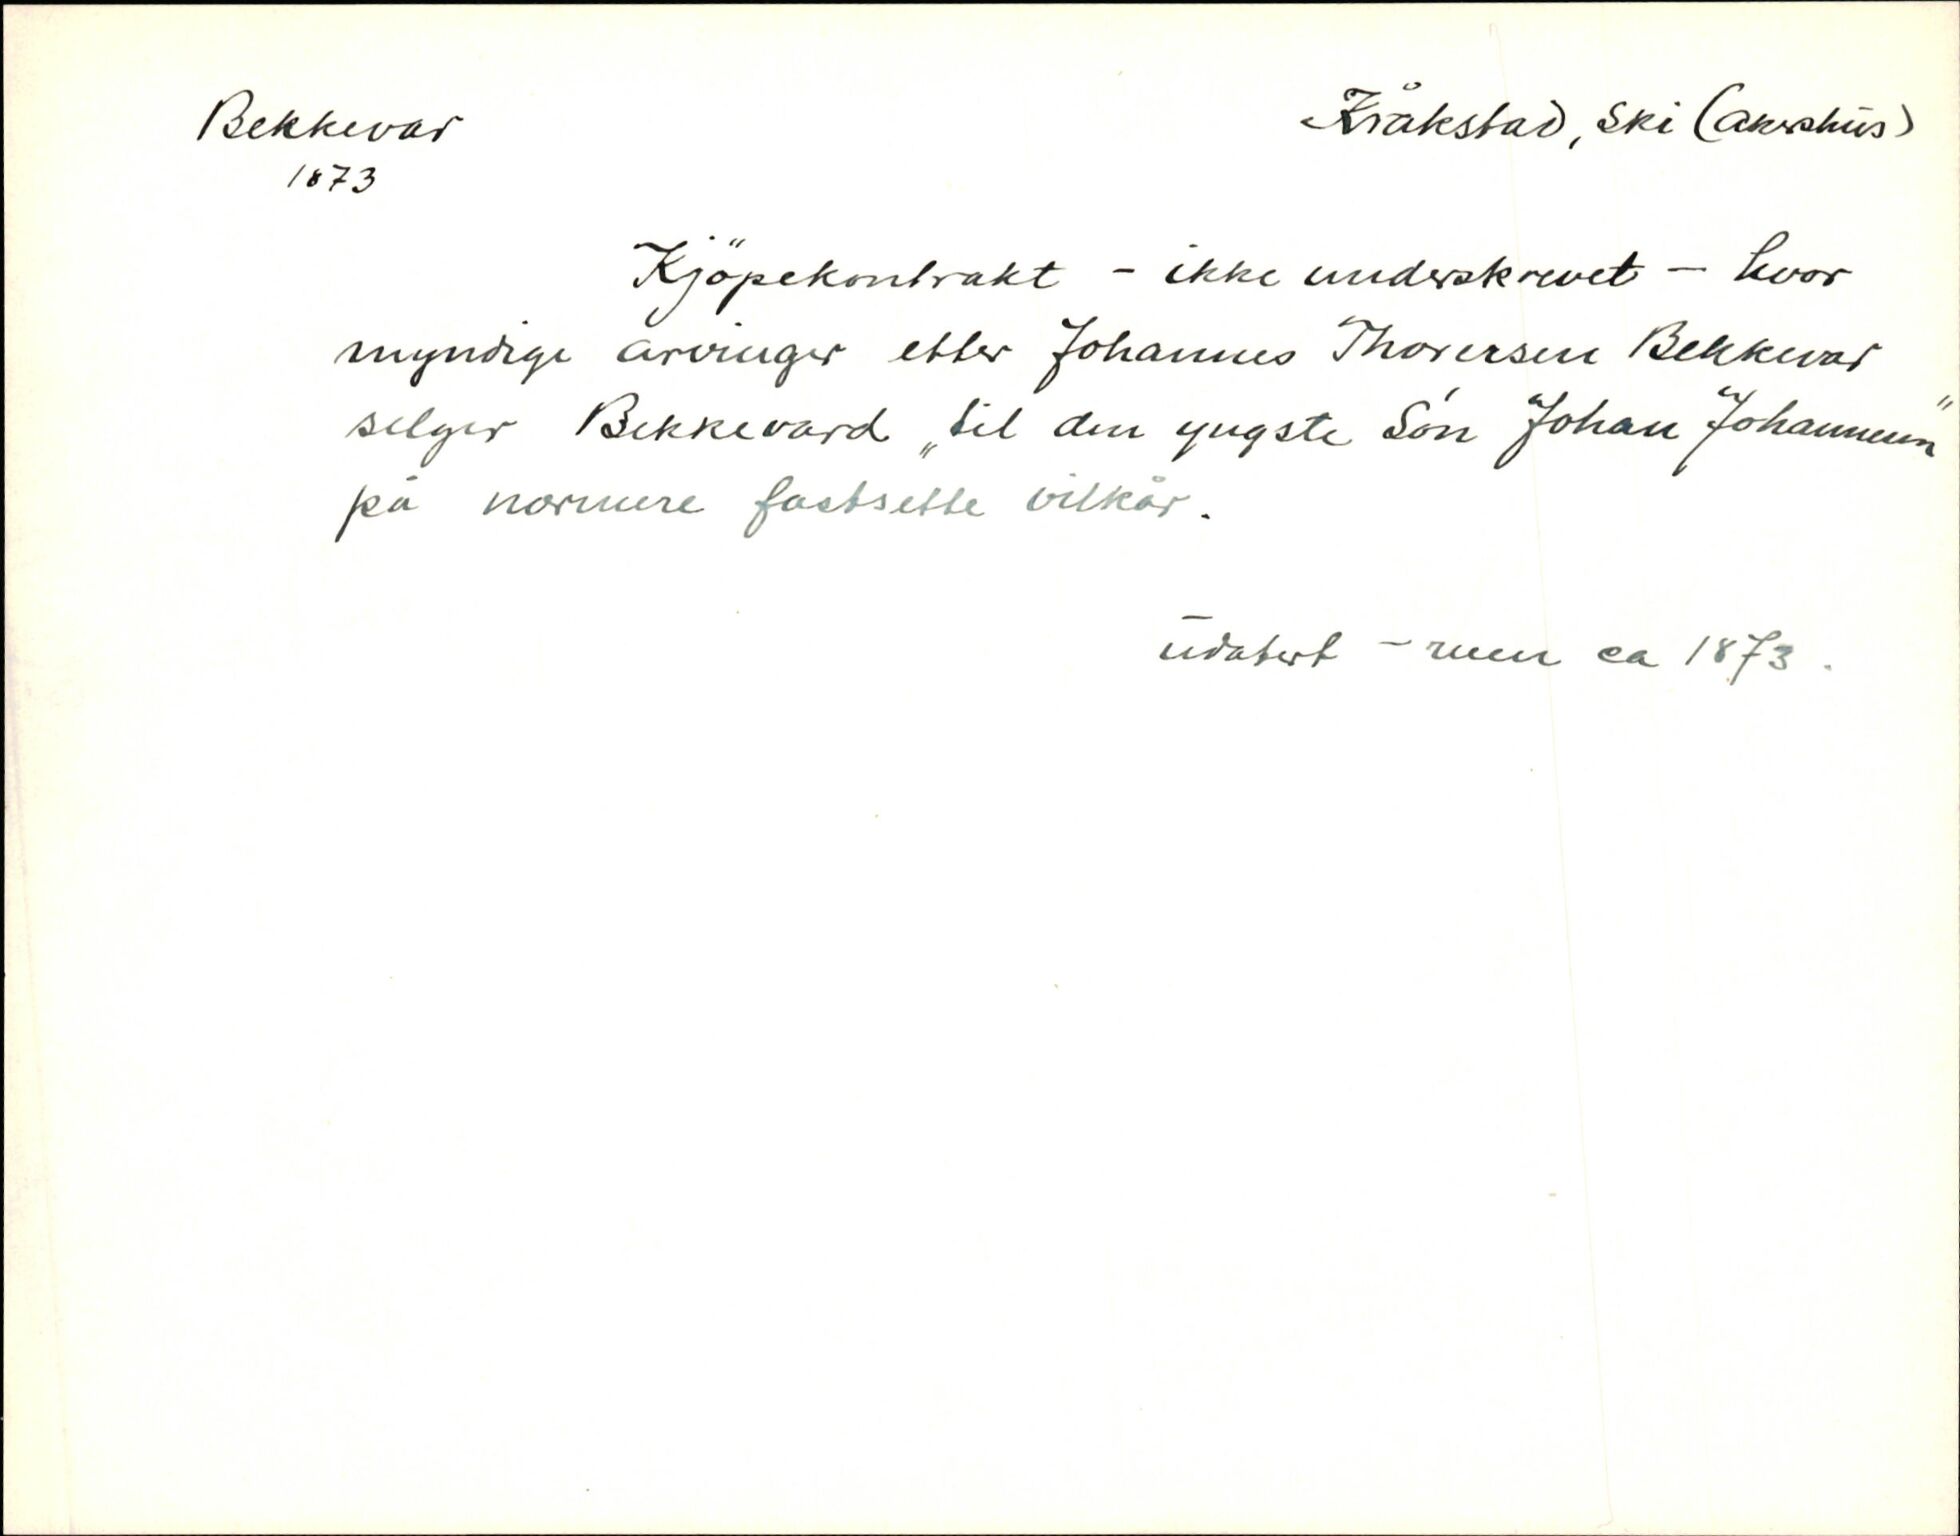 Bekkevar
Kråkstad, Ski (Akershus)
1873
Kjöpekontrakt - ikke underskrevet - hvor
myndige arvinger etter Johannes Thorersen Bekkevar
selger Bekkevard „til den yngste Són Johan Johannesen"
på nærmere fastsette vilkår.
udatert - men ca 1873.